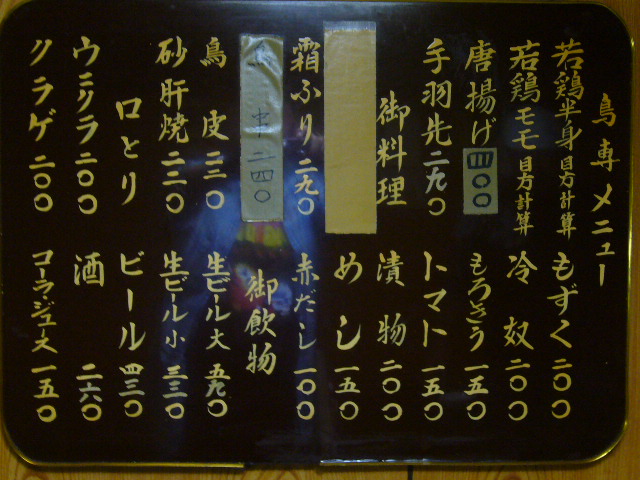 鳥専メニュー
若鶏半身目方計算
若鶏モモ目方計算
唐揚げ四〇〇
手羽先二九〇
御料理
霜ふり二九〇
串二四〇
鳥皮二三〇
砂肝焼二二〇
口とり
ウニクラ二〇〇
クラゲ二〇〇
もずく二〇〇
冷奴二〇〇
もろきう一五〇
トマト一五〇
漬物二〇〇
めし一五〇
赤だし一〇〇
御飲物
生ビール大五九〇
生ビール小三三〇
ビール四三〇
酒二六〇
コーラ・ジュース一五〇